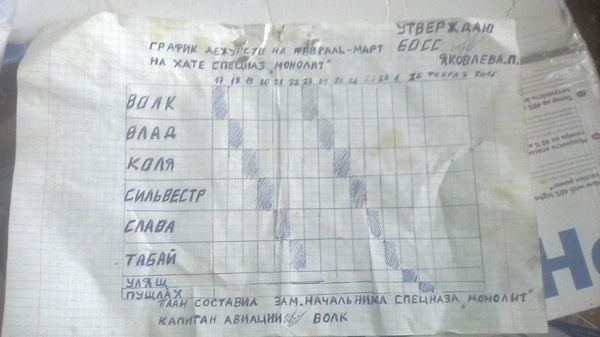 УТВЕРЖДАЮ
БОСС
ЯКОВЛЕВА.П.
ГРАФИК ДЕЖУРСТВ НА ФЕВРАЛЬ-МАРТ
НА ХАТЕ СПЕЦНАЗ „МОНОЛИТ"
17 18 19 20 21 22 23 24 25 26
ВОЛК
ВЛАД
КОЛЯ
СИЛЬВЕСТР
СЛАВА
ТАБАЙ
УЛЯЩ
ПУЩЛАХ
ПЛАН СОСТАВИЛ ЗАМ.НАЧАЛЬНИКА СПЕЦНАЗА „МОНОЛИТ"
КАПИТАН АВИАЦИИ ВОЛК